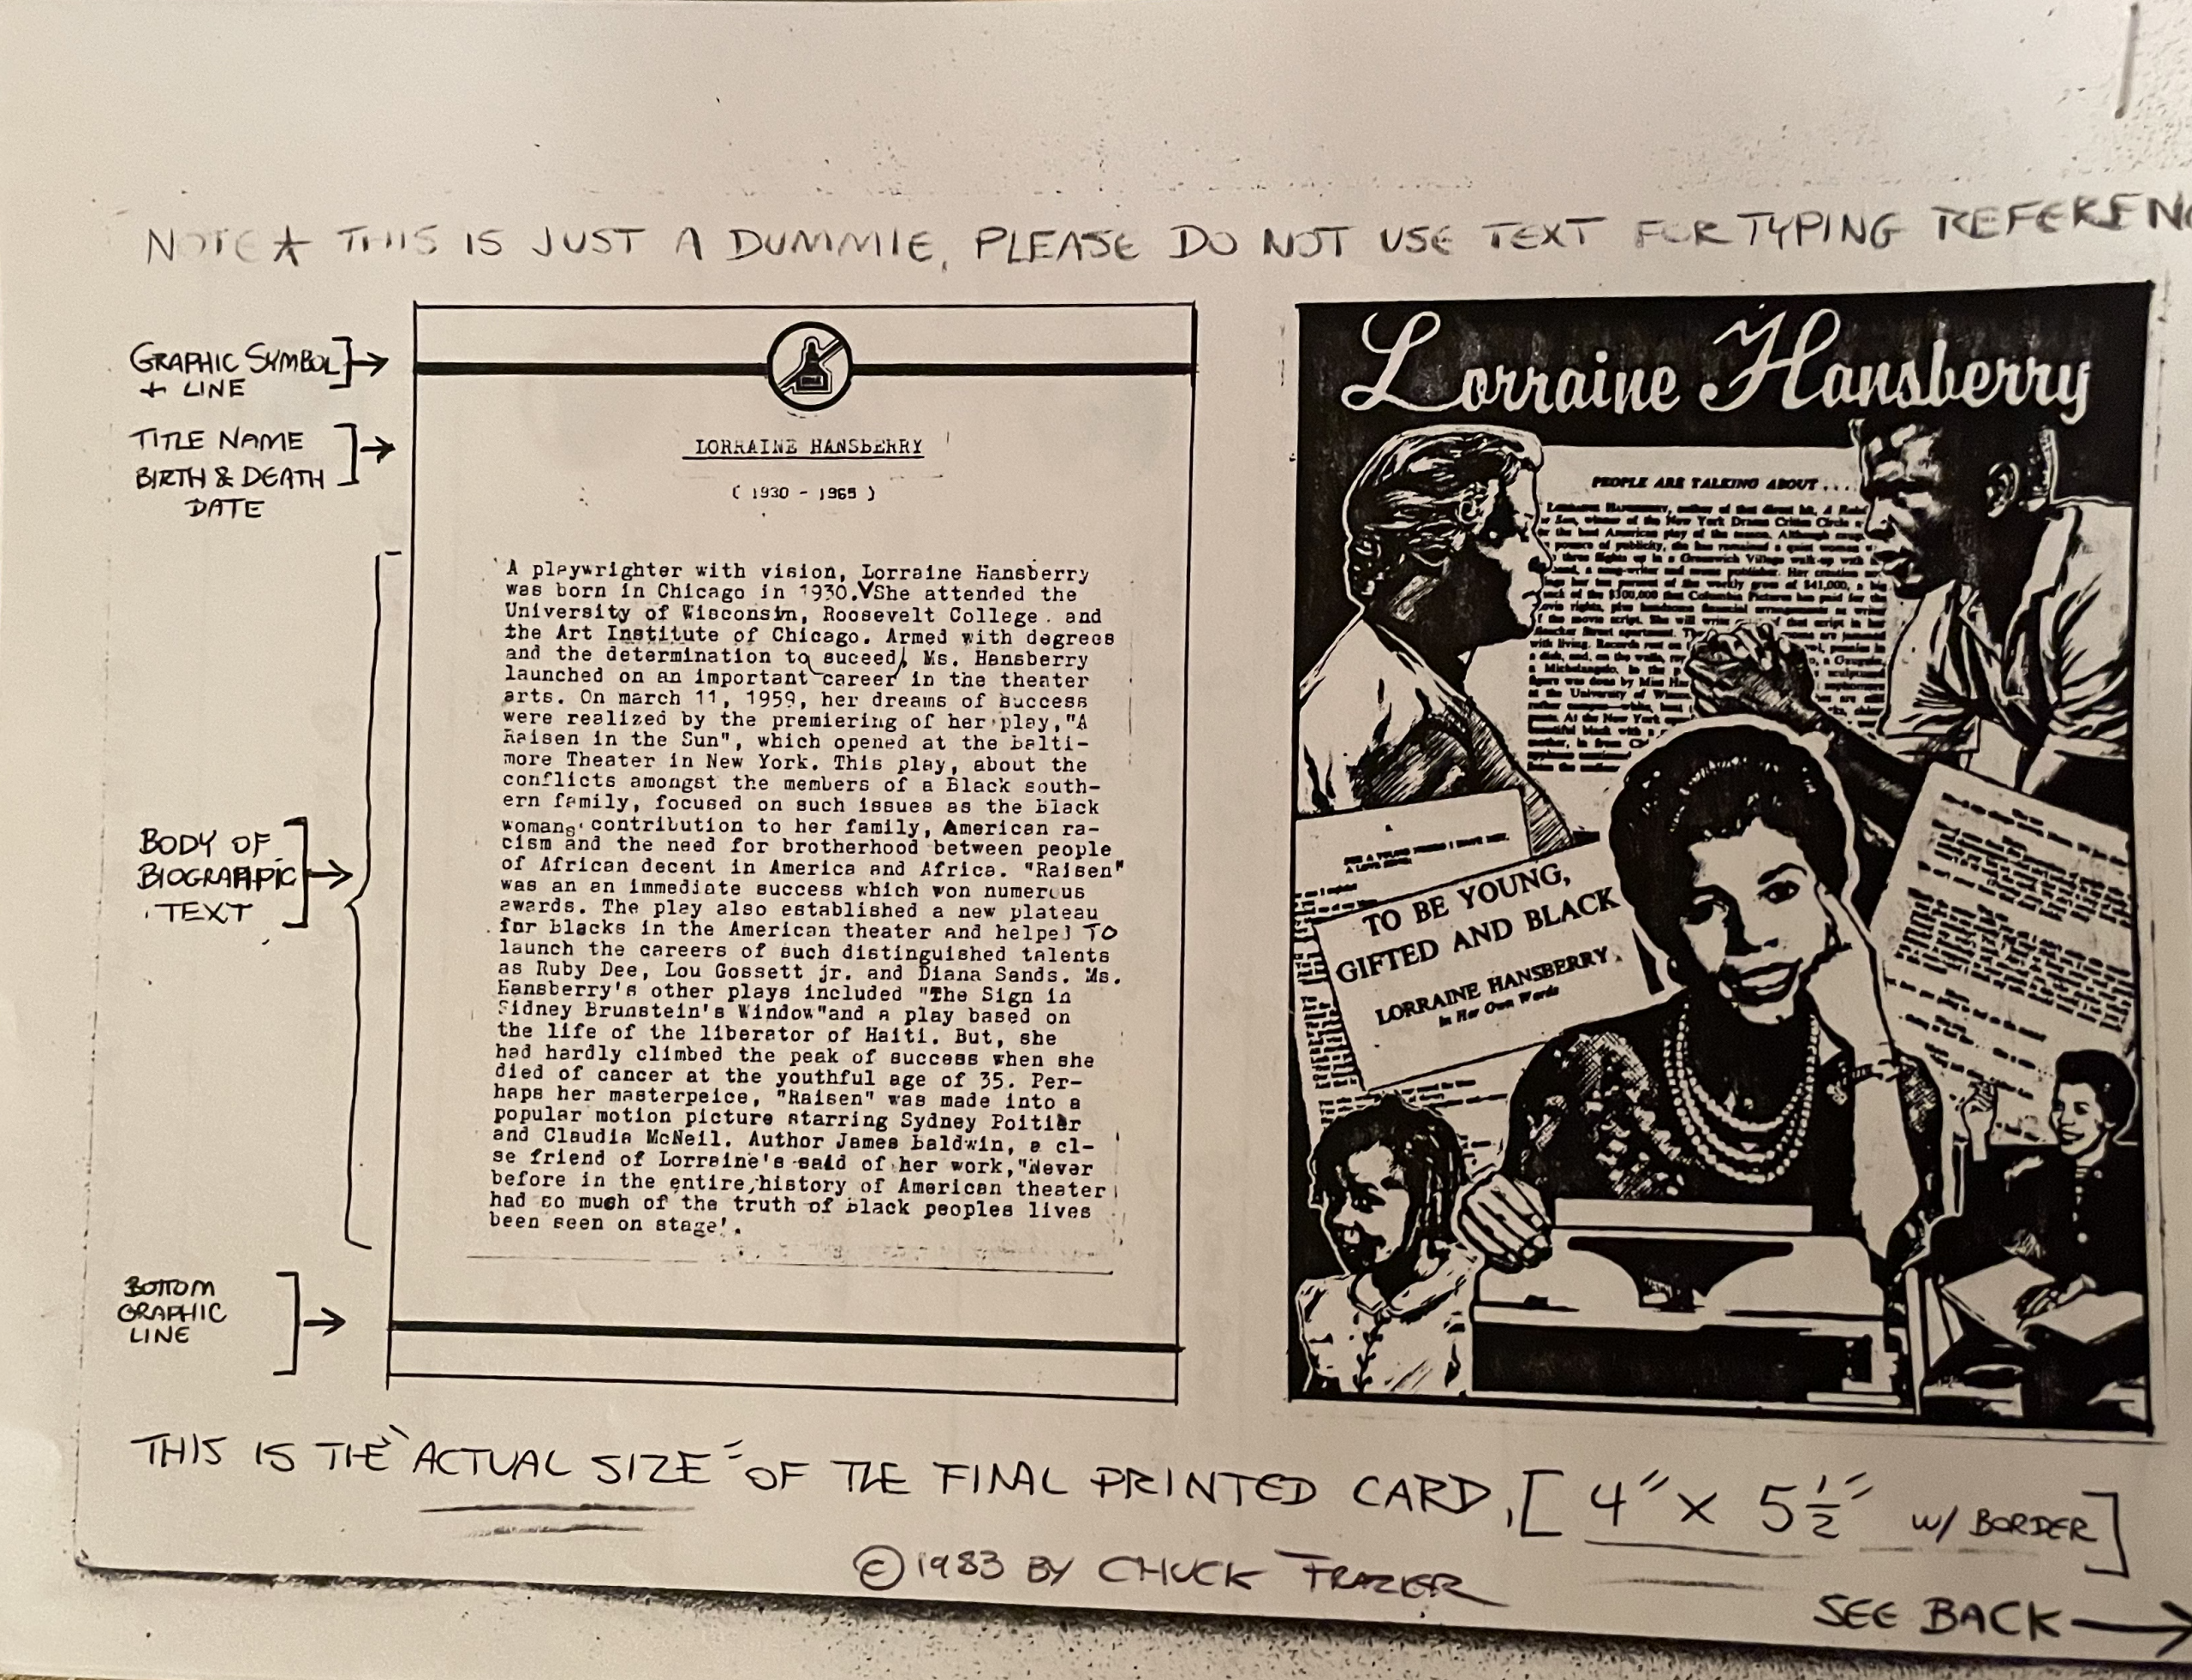 NOTE ★ THIS IS JUST A DUMMIE, PLEASE DO NOT USE TEXT FOR TYPING REFERENC
GRAPHIC SYMBOL
+ LINE
TITLE NAME
BIRTH & DEATH
DATE
BODY OF
BIOGRAPHIC
TEXT
BOTTOM
GRAPHIC
LINE
LORRAINE HANSBERRY
( 1930 - 1965 )
A playwrighter with vision, Lorraine Hansberry
was born in Chicago in 1930. She attended the
University of Wisconsin, Roosevelt College . and
the Art Institute of Chicago. Armed with degrees
and the determination to suceed, Ms. Hansberry
launched on an important career in the theater
arts. On march 11, 1959, her dreams of success
were realized by the premiering of her play,"A
Raisen in the Sun", which opened at the Balti-
more Theater in New York. This play, about the
conflicts amongst the members of a Black south-
ern family, focused on such issues as the Black
womans' contribution to her family, American ra-
cism and the need for brotherhood between people
of African decent in America and Africa. "Raisen"
was an an immediate success which won numerous
awards. The play also established a new plateau
for blacks in the American theater and helped TO
launch the careers of such distinguished talents
as Ruby Dee, Lou Gossett jr. and Diana Sands. Ms.
Hansberry's other plays included "The Sign in
Sidney Brunstein's Window"and a play based on
the life of the liberator of Haiti. But, she
had hardly climbed the peak of success when she
died of cancer at the youthful age of 35. Per-
haps her masterpeice, "Raisen" was made into a
popular motion picture starring Sydney Poitier
and Claudia McNeil. Author James Baldwin, a cl-
se friend of Lorraine's said of her work,"Never
before in the entire history of American theater
had so much of the truth of Black peoples lives
been seen on stage'.
Lorraine Hansberry
PEOPLE ARE TALKING ABOUT . . .
TO BE YOUNG,
GIFTED AND BLACK
LORRAINE HANSBERRY
In Her Own Words
THIS IS THE "ACTUAL SIZE" OF THE FINAL PRINTED CARD, [ 4" X 5 1/2" W/ BORDER ]
© 1983 BY CHUCK FRAZIER
SEE BACK →